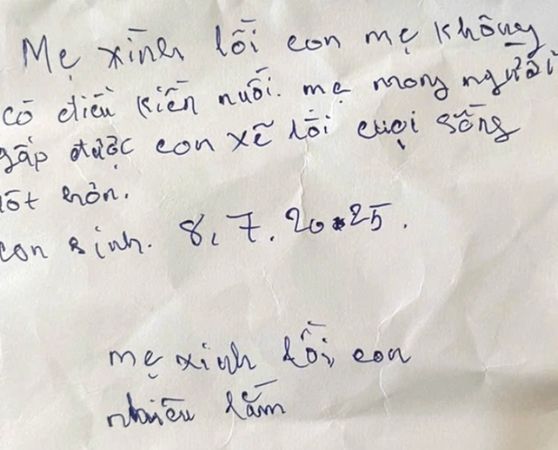 Mẹ xinh lỗi con mẹ không
có điều kiễn nuôi. mẹ mong người
gấp được con xẽ lỗi cuọi sống
tôt hơn.
con sinh. 8. 7. 2025.
mẹ xinh lỗi con
nhiều lắm